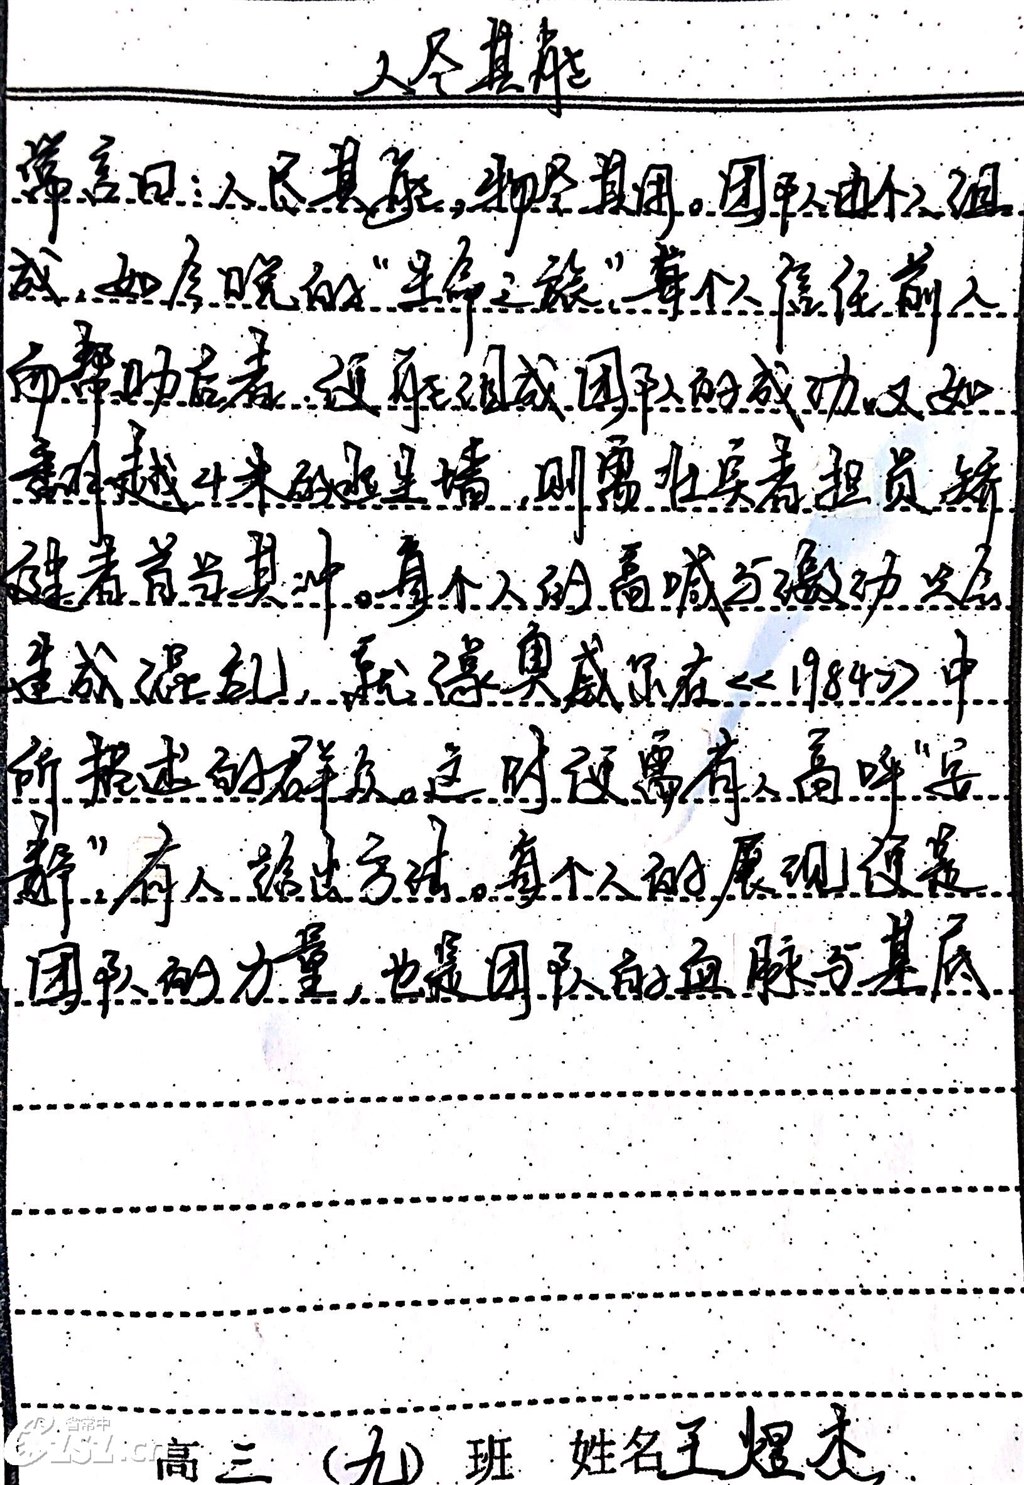 人尽其能
常言曰：人尽其能，物尽其用。团队由个人组
成，如今晚的“生命之旅”，每个人信任前人
向帮助后者，便能组成团队的成功。又如
翻越4米的逃生墙，则需壮实者担负，矫
健者首当其冲。每个人的高喊与激动只会
造成混乱，就像奥威尔在《1984》中
所描述的群众。这时便需有人高呼“安
静”，有人给出方法。每个人的展现便是
团队的力量，也是团队的血脉与基底
省常中
高三（九）班 姓名王煜杰